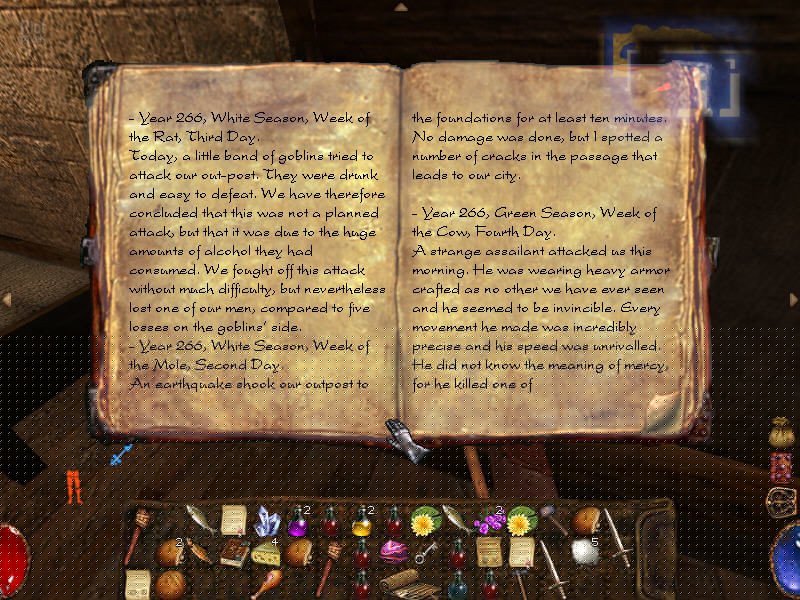 - Year 266, White Season, Week of
the Rat, Third Day.
Today, a little band of goblins tried to
attack our out-post. They were drunk
and easy to defeat. We have therefore
concluded that this was not a planned
attack, but that it was due to the huge
amounts of alcohol they had
consumed. We fought off this attack
without much difficulty, but nevertheless
lost one of our men, compared to five
losses on the goblins' side.
- Year 266, White Season, Week of
the Mole, Second Day.
An earthquake shook our outpost to
the foundations for at least ten minutes.
No damage was done, but I spotted a
number of cracks in the passage that
leads to our city.
- Year 266, Green Season, Week of
the Cow, Fourth Day.
A strange assailant attacked us this
morning. He was wearing heavy armor
crafted as no other we have ever seen
and he seemed to be invincible. Every
movement he made was incredibly
precise and his speed was unrivalled.
He did not know the meaning of mercy,
for he killed one of
2
2
2
2
4
5